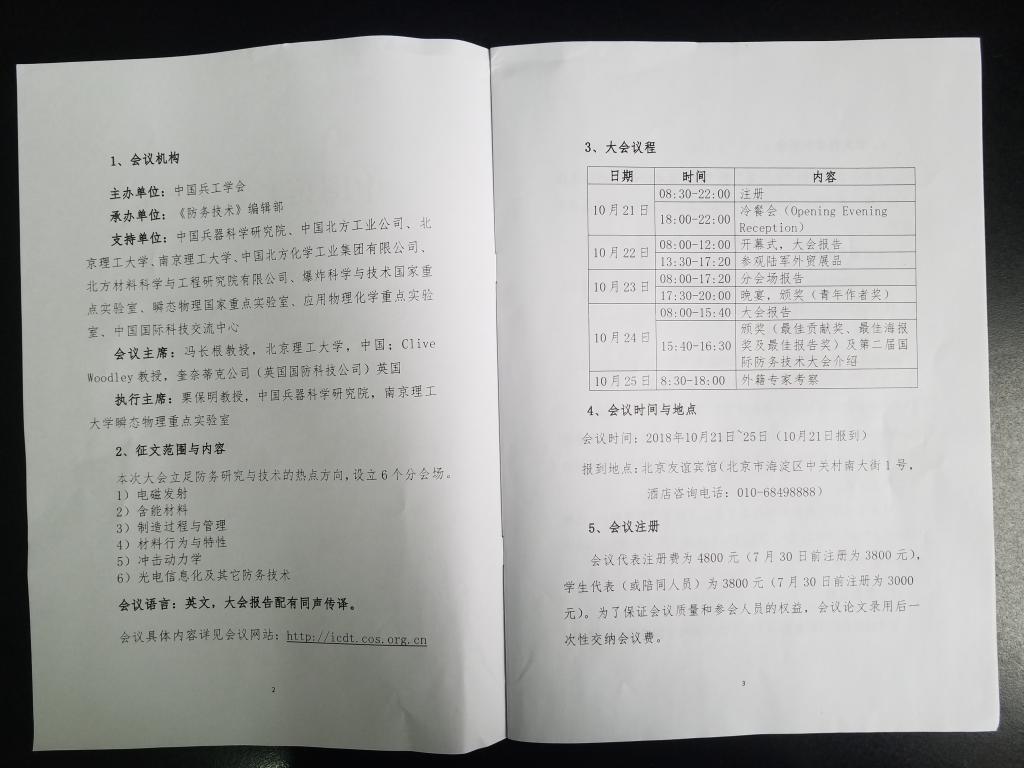 1、会议机构
主办单位：中国兵工学会
承办单位：《防务技术》编辑部
支持单位：中国兵器科学研究院、中国北方工业公司、北
京理工大学、南京理工大学、中国北方化学工业集团有限公司、
北方材料科学与工程研究院有限公司、爆炸科学与技术国家重
点实验室、瞬态物理国家重点实验室、应用物理化学重点实验
室、中国国际科技交流中心
会议主席：冯长根教授，北京理工大学，中国；Clive
Woodley 教授，奎奈蒂克公司（英国国防科技公司）英国
执行主席：栗保明教授，中国兵器科学研究院，南京理工
大学瞬态物理重点实验室
2、征文范围与内容
本次大会立足防务研究与技术的热点方向，设立 6 个分会场。
1）电磁发射
2）含能材料
3）制造过程与管理
4）材料行为与特性
5）冲击动力学
6）光电信息化及其它防务技术
会议语言：英文，大会报告配有同声传译。
会议具体内容详见会议网站：http://icdt.cos.org.cn
2
3、大会议程
日期 时间 内容
10 月 21 日 08:30-22:00 注册
18:00-22:00 冷餐会（Opening Evening
Reception）
10 月 22 日 08:00-12:00 开幕式，大会报告
13:30-17:20 参观陆军外贸展品
10 月 23 日 08:00-17:20 分会场报告
17:30-20:00 晚宴，颁奖（青年作者奖）
10 月 24 日 08:00-15:40 大会报告
15:40-16:30 颁奖（最佳贡献奖、最佳海报
奖及最佳报告奖）及第二届国
际防务技术大会介绍
10 月 25 日 8:30-18:00 外籍专家考察
4、会议时间与地点
会议时间：2018年10月21日~25日（10月21日报到）
报到地点：北京友谊宾馆（北京市海淀区中关村南大街 1 号，
酒店咨询电话：010-68498888）
5、会议注册
会议代表注册费为 4800 元（7 月 30 日前注册为 3800 元），
学生代表（或陪同人员）为 3800 元（7 月 30 日前注册为 3000
元）。为了保证会议质量和参会人员的权益，会议论文录用后一
次性交纳会议费。
3